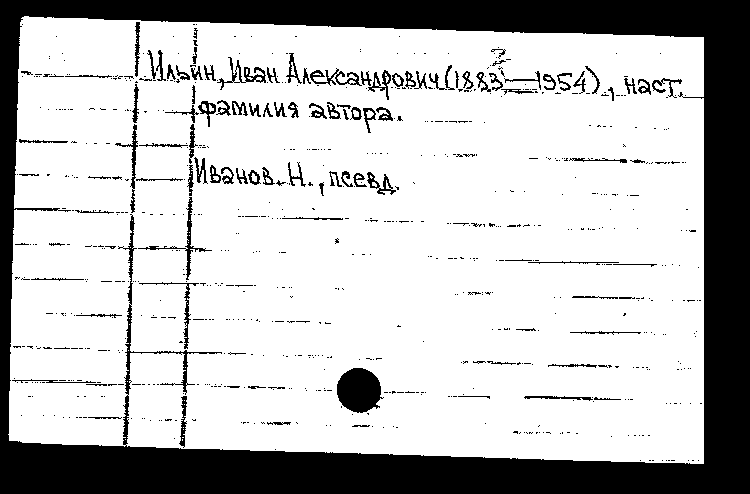 Ильин, Иван Александрович (1883—1954), наст.
фамилия автора.
Иванов. Н., псевд.